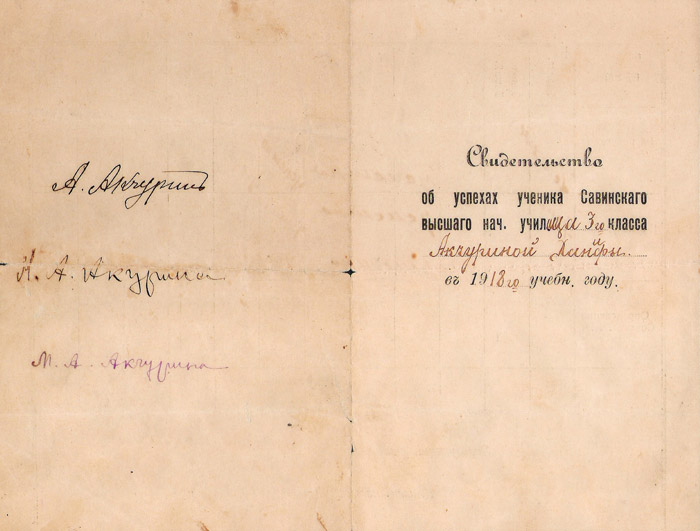 А. Акчуринъ
М. А. Акчурина
М. А. Акчурина
Свидетельство
об успехах ученика Савинскаго
высшаго нач. училища 3го класса
Акчуриной Ханифы.
въ 1918го учебн. году.